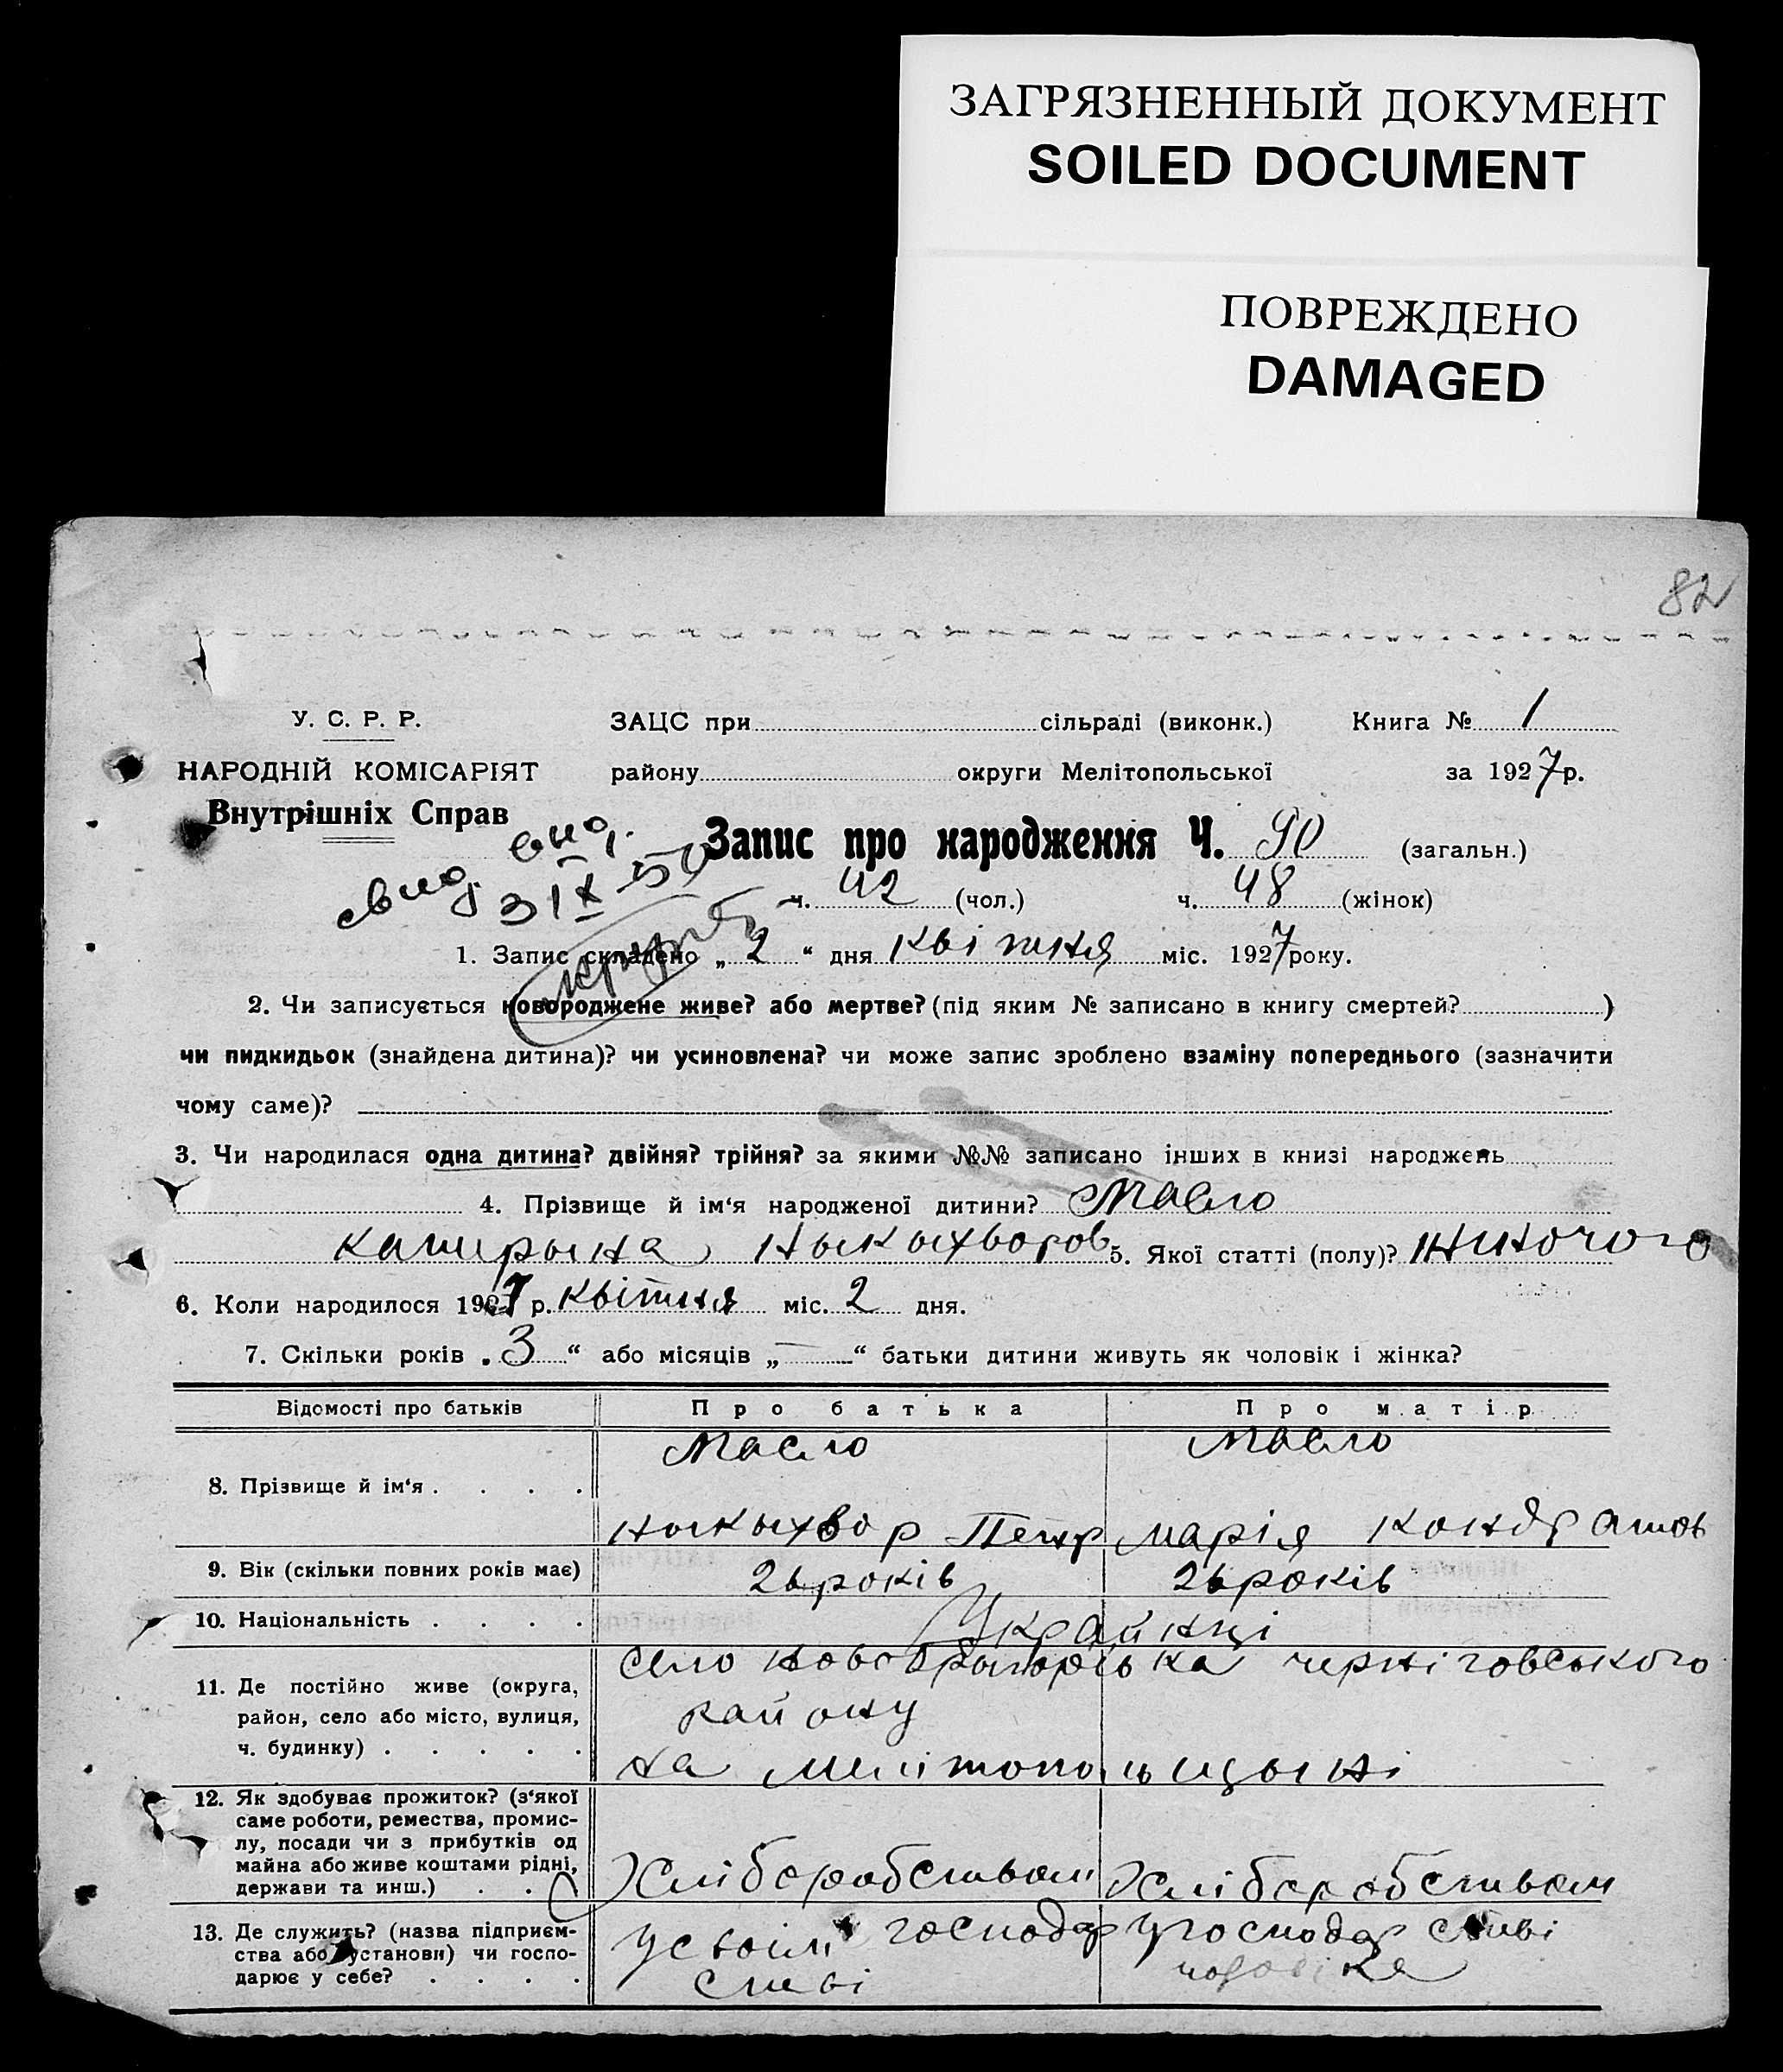 ЗАГРЯЗНЕННЫЙ ДОКУМЕНТ
SOILED DOCUMENT
ПОВРЕЖДЕНО
DAMAGED
82
У. С. Р. Р.
НАРОДНІЙ КОМІСАРІЯТ
Внутрішніх Справ
ЗАЦС при сільраді (виконк.) Книга № 1
району округи Мелітопольської за 1927 р.
Запис про народження Ч. 90 (загальн.)
ч. 42 (чол.) ч. 48 (жінок)
1. Запис складено „ 2 “ дня квітня міс. 1927 року.
2. Чи записується новороджене живе? або мертве? (під яким № записано в книгу смертей? )
чи пидкидьок (знайдена дитина)? чи усиновлена? чи може запис зроблено взаміну попереднього (зазначити
чому саме)?
3. Чи народилася одна дитина? двійня? трійня? за якими №№ записано інших в книзі народжень
4. Прізвище й ім‘я народженої дитини? Масло
Катирына Ныкыхворов 5. Якої статті (полу)? жиночого
6. Коли народилося 1927 р. квітня міс. 2 дня.
7. Скільки років „ 3 “ або місяців „ — “ батьки дитини живуть як чоловік і жінка?
Відомості про батьків Про батька Про матір
Масло Масло
8. Прізвище й ім‘я . . . .
Ныкыхвор Петр Марія Кондратов
9. Вік (скільки повних років має) 26 років 26 років
10. Національність . . . . Украйнці
11. Де постійно живе (округа,
район, село або місто, вулиця,
ч. будинку) . . . . .
село черніговського
району
на Мелітопольщыні
12. Як здобуває прожиток? (з‘якої
саме роботи, ремества, промис-
лу, посади чи з прибутків од
майна або живе коштами рідні,
держави та инш.) . . .
Хліборобством Хліборобством
13. Де служить? (назва підприєм-
ства або установи) чи госпо-
дарює у себе? . . . .
У своім господар
стві
У господар стві
чоловіка